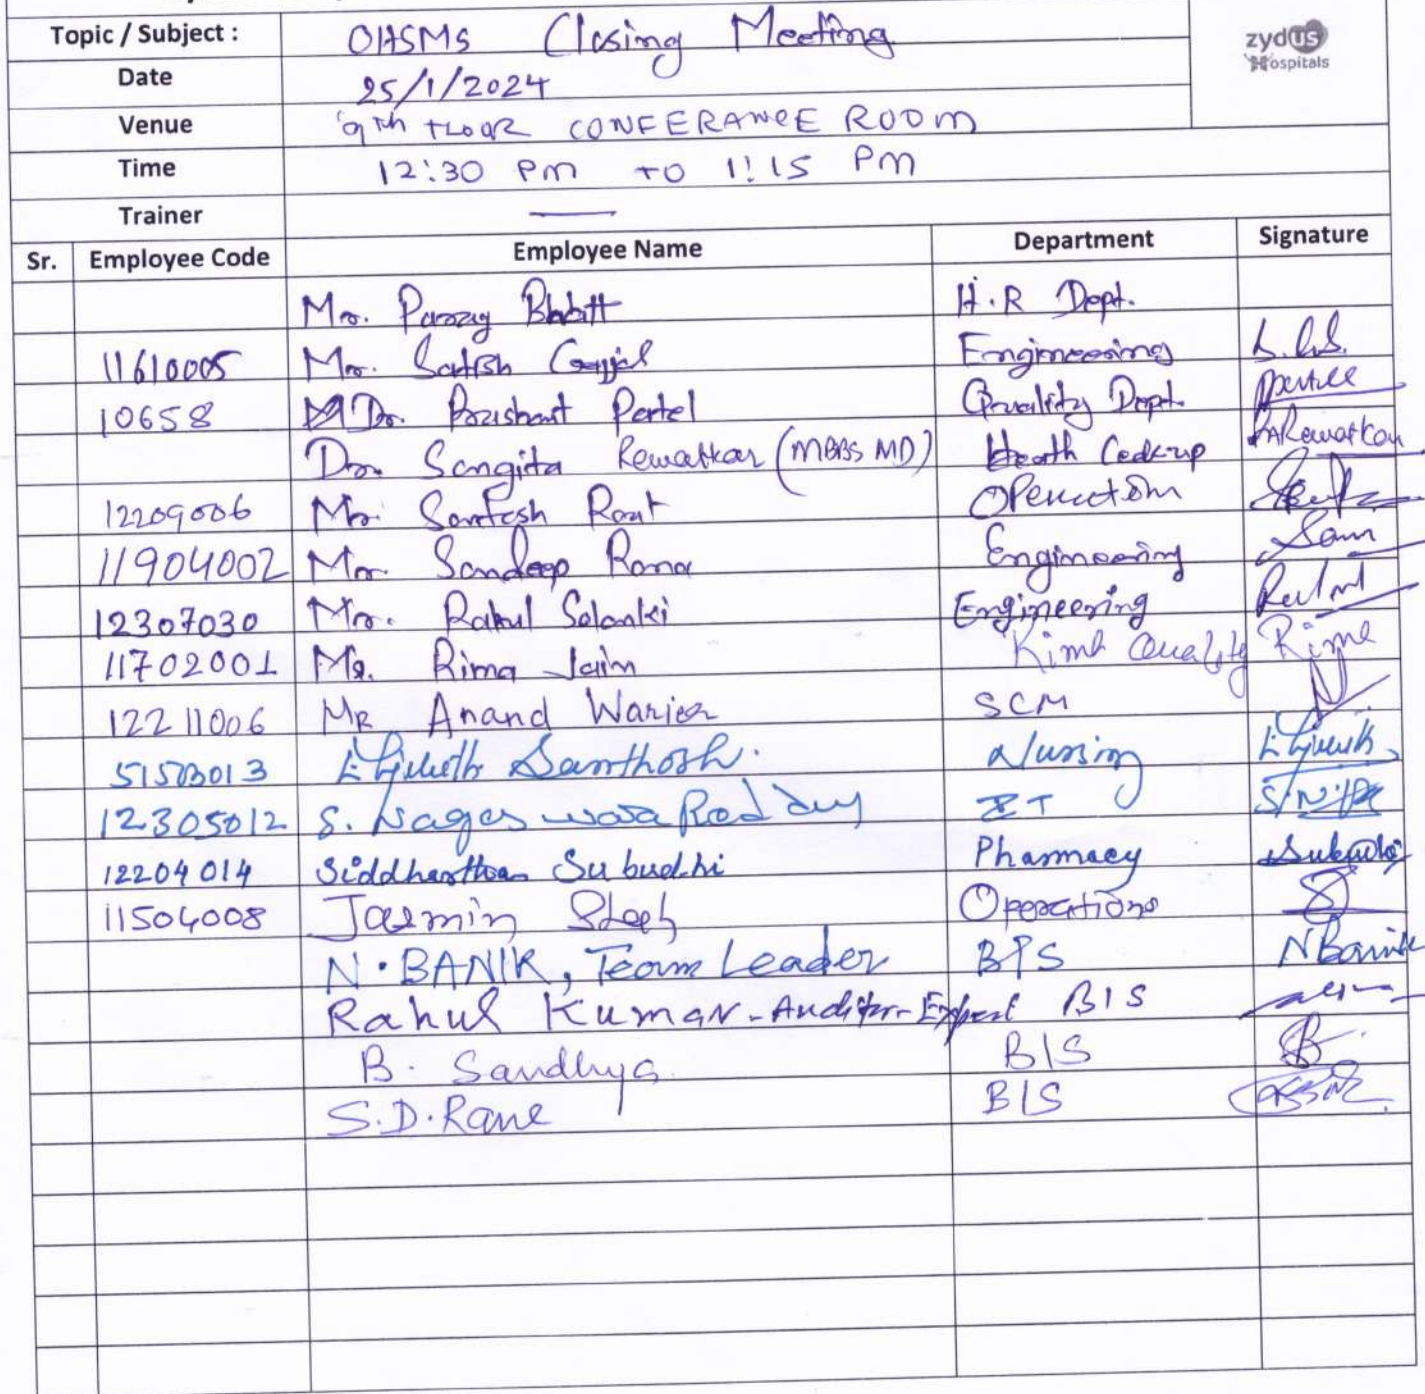 Topic / Subject : OHSMS Closing Meeting
zydus Hospitals
Date 25/1/2024
Venue 9th FLOOR CONFERANCE ROOM
Time 12:30 PM TO 1:15 PM
Trainer —
Sr. Employee Code Employee Name Department Signature
Mr. Parag H.R Dept.
11610005 Mr. Satish Engineering
10658 Dr. Prashant Patel Quality Dept.
Dr. Sangita Rewatkar (MBBS MD) Health Rewatkar
12209006 Mr. Santosh Raut Operation
11904002 Mr. Sandeep Rana Engineering
12307030 Mr. Rahul Solanki Engineering
11702001 Ms. Rima Jain Quality Rima
12211006 MR Anand Warier SCM
51503013 Santhosh. Nursing
12305012 S. Nageswara Reddy IT
12204014 Siddhartha Subudhi Pharmacy Subudhi
11504008 Jasmin Operations
N. BANIK, Team Leader BIS NBanik
Rahul Kumar - Auditor - Expert BIS
B. Sandhya BIS
S.D. Rane BIS